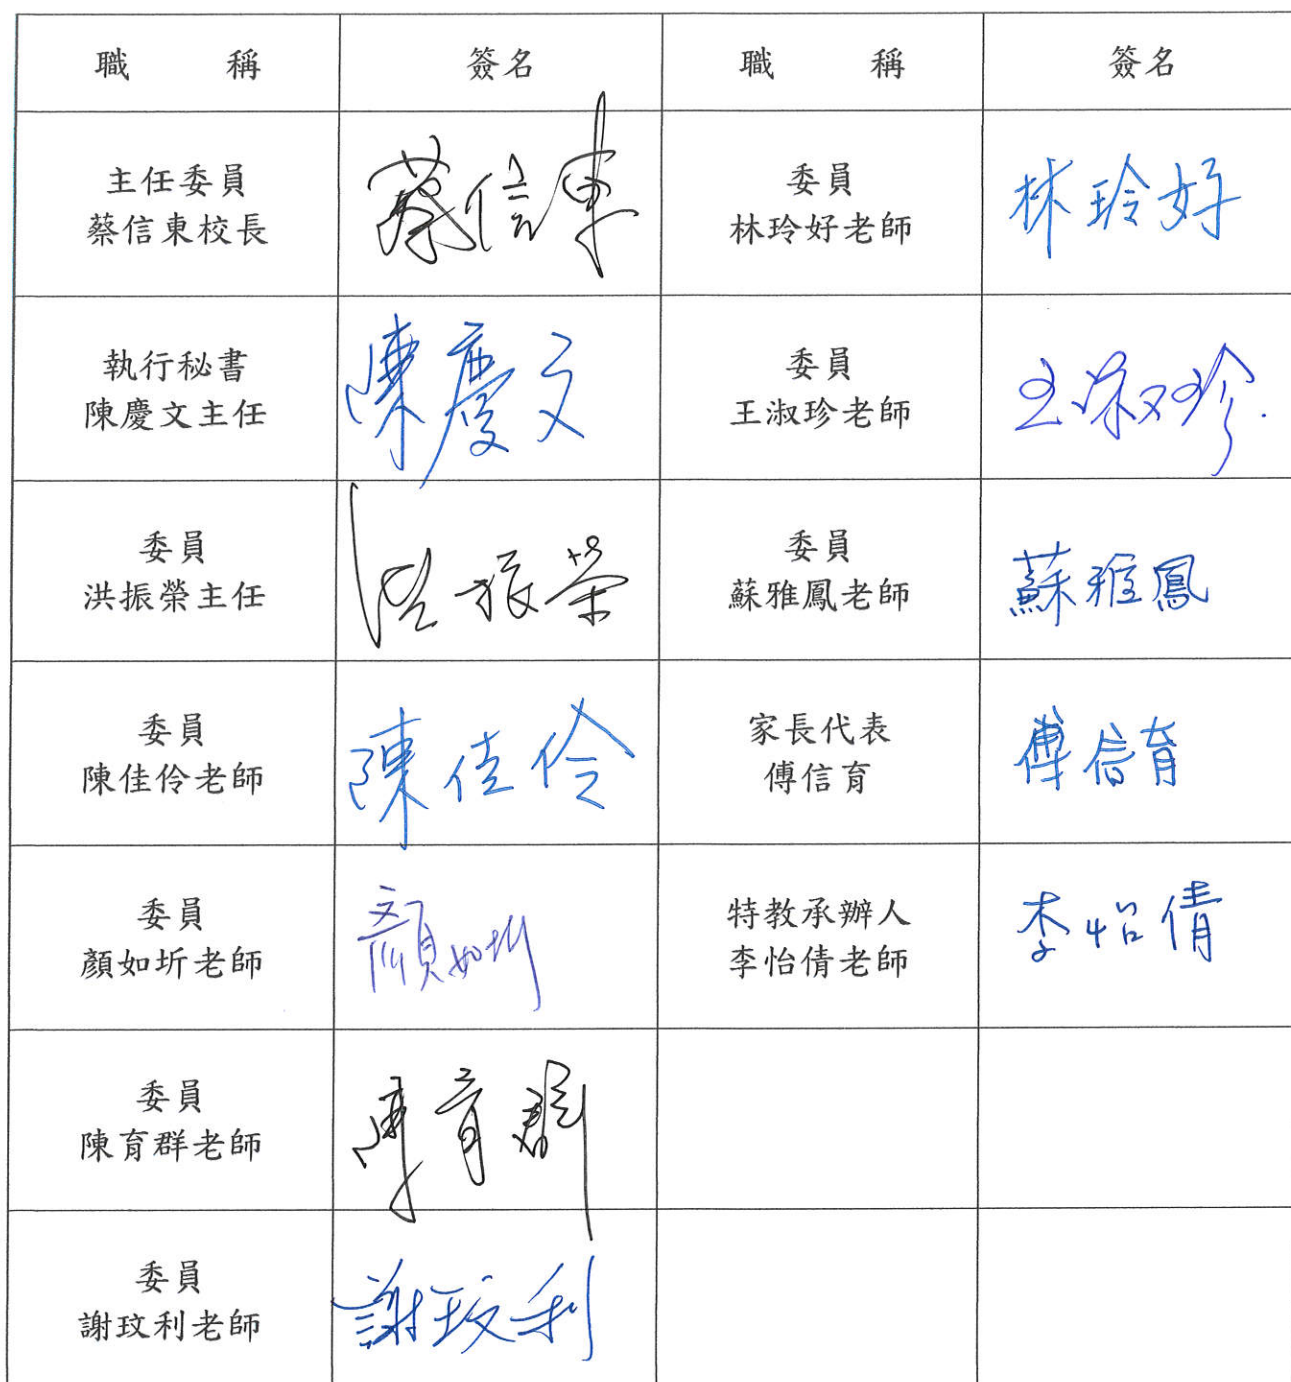 職 稱 簽名 職 稱 簽名
主任委員
蔡信東校長
蔡信東
委員
林玲好老師
林玲好
執行秘書
陳慶文主任
陳慶文
委員
王淑珍老師
王淑珍
委員
洪振榮主任
洪振榮
委員
蘇雅鳳老師
蘇雅鳳
委員
陳佳伶老師
陳佳伶
家長代表
傅信育
傅信育
委員
顏如圻老師
顏如圻
特教承辦人
李怡倩老師
李怡倩
委員
陳育群老師
陳育群
委員
謝玟利老師
謝玟利